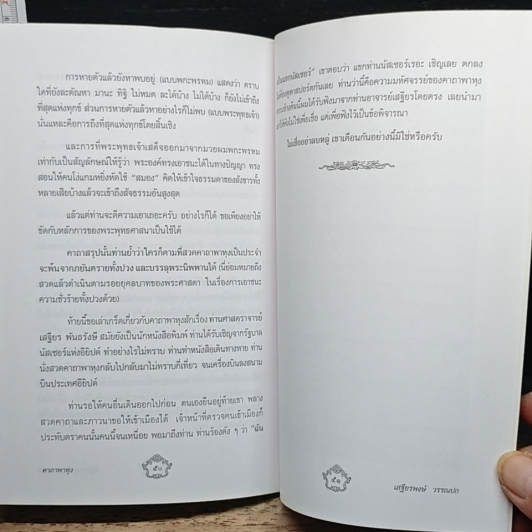 การหายตัวแล้วยังหาพบอยู่ (แบบพกะพรหม) แสดงว่า ตราบ
ใดที่ยังละตัณหา มานะ ทิฐิ ไม่หมด ละได้บ้าง ไม่ได้บ้าง ก็ยังไม่เข้าถึง
ที่สุดแห่งทุกข์ ส่วนการหายตัวแล้วหาอย่างไรก็ไม่พบ (แบบพระพุทธเจ้า)
นั่นแหละคือการถึงที่สุดแห่งทุกข์โดยสิ้นเชิง
และการที่พระพุทธเจ้าเสด็จออกมาจากมวยผมพกะพรหม
เท่ากับเป็นสัญลักษณ์ให้รู้ว่า พระองค์ทรงเอาชนะได้ในทางปัญญา ทรง
สอนให้คนโง่แกมหยิ่งหัดใช้ "สมอง" คิดให้เข้าใจธรรมดาของสังขารทั้ง
หลายเสียบ้างแล้วจะเข้าถึงสัจธรรมอันสูงสุด
แล้วแต่ท่านจะตีความเอาเถอะครับ อย่างไรก็ได้ ขอเพียงอย่าให้
ขัดกับหลักการของพระพุทธศาสนาเป็นใช้ได้
คาถาสรุปนั้นท่านย้ำว่าใครก็ตามที่สวดคาถาพาหุงเป็นประจำ
จะพ้นจากภยันตรายทั้งปวง และบรรลุพระนิพพานได้ (นี่ย่อมหมายถึง
สวดแล้วดำเนินตามรอยยุคลบาทของพระศาสดา ในเรื่องการเอาชนะ
ความชั่วร้ายทั้งปวงด้วย)
ท้ายนี้ขอเล่าเกร็ดเกี่ยวกับคาถาพาหุงสักเรื่อง ท่านศาสตราจารย์
เสฐียร พันธรังษี สมัยยังเป็นนักหนังสือพิมพ์ ท่านได้รับเชิญจากรัฐบาล
นัสเซอร์แห่งอียิปต์ ทำอย่างไรไม่ทราบ ท่านทำหนังสือเดินทางหาย ท่าน
นั่งสวดคาถาพาหุงกลับไปกลับมาไม่ทราบกี่เที่ยว จนเครื่องบินลงสนาม
บินประเทศอียิปต์
ท่านรอให้คนอื่นเดินออกไปก่อน ตนเองยืนอยู่ท้ายเขา พลาง
สวดคาถาและภาวนาขอให้เข้าเมืองได้ เจ้าหน้าที่ตรวจคนเข้าเมืองก็
ประทับตราคนนั้นคนนี้จนเหนื่อย พอมาถึงท่าน ท่านร้องดัง ๆ ว่า "ฉัน
คาถาพาหุง
๕๐
เป็นแขกนัสเซอร์" เขาตอบว่า แขกท่านนัสเซอร์เรอะ เชิญเลย ตกลง
ท่านนี้คือความมหัศจรรย์ของคาถาพาหุง
ผมได้รับฟังมาจากท่านอาจารย์เสฐียรโดยตรง เลยนำมา
แต่เพื่อฟังไว้เป็นข้อพิจารณา
ไม่เชื่ออย่าลบหลู่ เขาเตือนกันอย่างนี้มิใช่หรือครับ
๕๑
เสฐียรพงษ์ วรรณปก